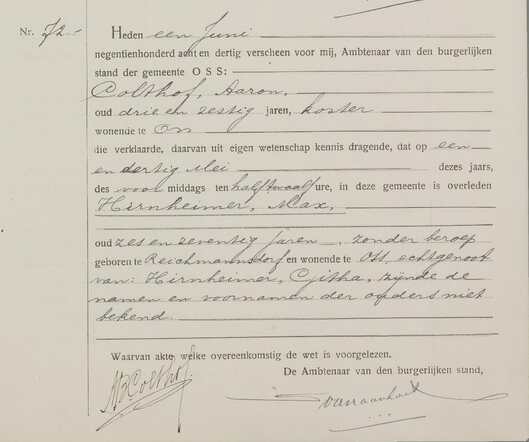 Nr. 72.
Heden een Juni
negentienhonderd acht en dertig verscheen voor mij, Ambtenaar van den burgerlijken
stand der gemeente O S S :
Colthof, Aaron,
oud drie en zestig jaren, koster
wonende te Oss
die verklaarde, daarvan uit eigen wetenschap kennis dragende, dat op een
en dertig Mei dezes jaars,
des voormiddags ten half twaalf ure, in deze gemeente is overleden
Hirnheimer, Max,
oud zes en zeventig jaren, zonder beroep
geboren te Reichmannsdorf en wonende te Oss, echtgenoot
van: Hirnheimer, zijnde de
namen en voornamen der ouders niet
bekend.
Waarvan akte, welke overeenkomstig de wet is voorgelezen.
De Ambtenaar van den burgerlijken stand,
Colthof